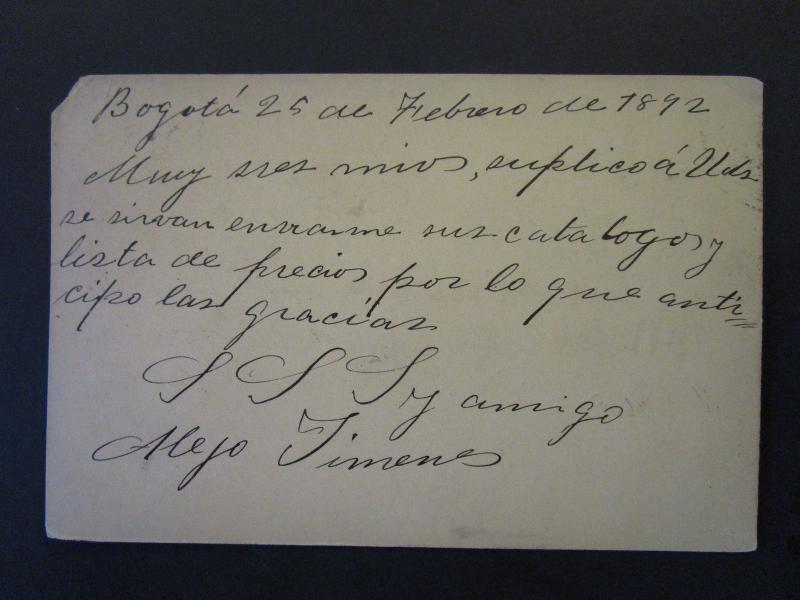 Bogotá 25 de Febrero de 1892
Muy sres mios, suplico á Uds
se sirvan enviarme sus catalogos y
lista de precios por lo que anti=
cipo las gracias
S S S y amigo
Alejo Jimenes